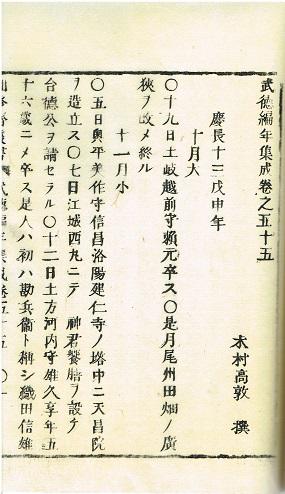 武德編年集成卷之五十五
木村高敦 撰
慶長十三戊申年
十月大
〇十九日土岐越前守賴元卒ス〇是月尾州田畑ノ廣
狹ヲ改メ終ル
十一月小
〇五日奧平美作守信昌洛陽建仁寺ノ塔中ニ天昌院
ヲ造立ス〇七日江城西丸ニテ 神君饗膳ヲ設テ
台德公ヲ請セラル〇十二日土方河内守雄久享年五
十六歲ニメ卒ス是人ハ初ハ勘兵衞ト稱シ織田信雄